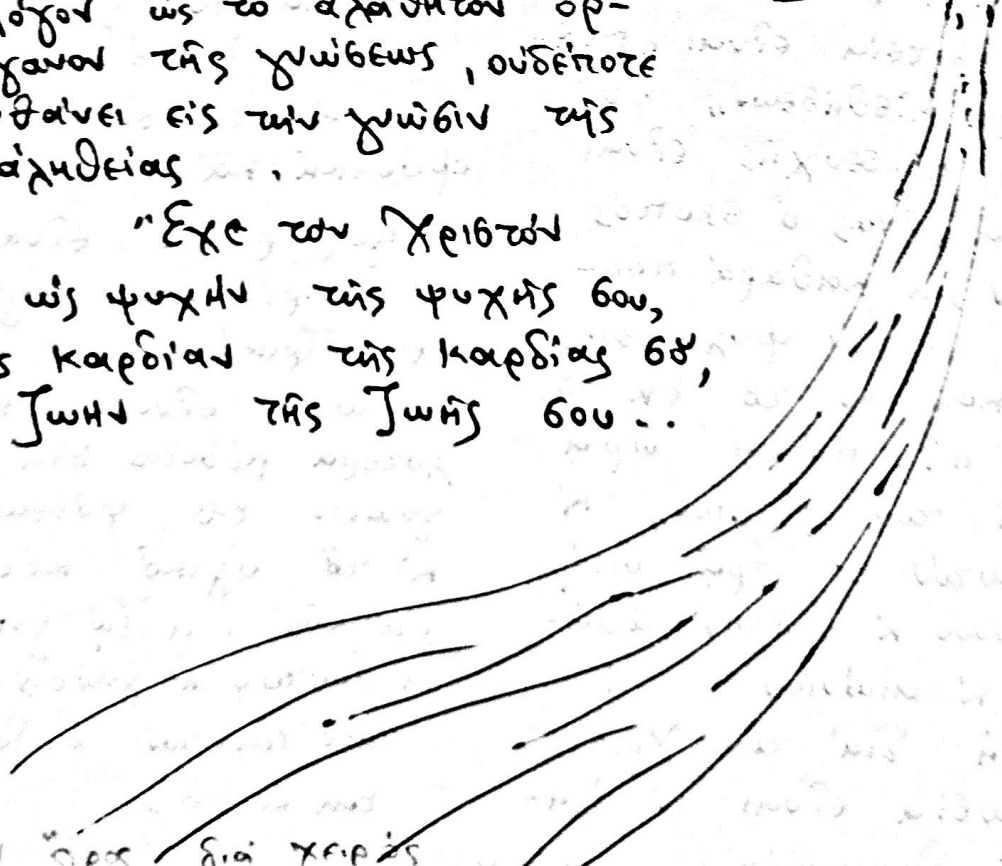 λόγον ὡς τὸ ἀλάθητον ὄρ-
γανον τῆς γνώσεως, οὐδέποτε
φθάνει εἰς τὴν γνῶσιν τῆς
ἀληθείας.
Ἔχε τον Χριστόν
ὡς ψυχὴν τῆς ψυχῆς σου,
ς καρδίαν τῆς καρδίας σȣ,
ζωὴν τῆς ζωῆς σου..
Ὄρος διά χειρός